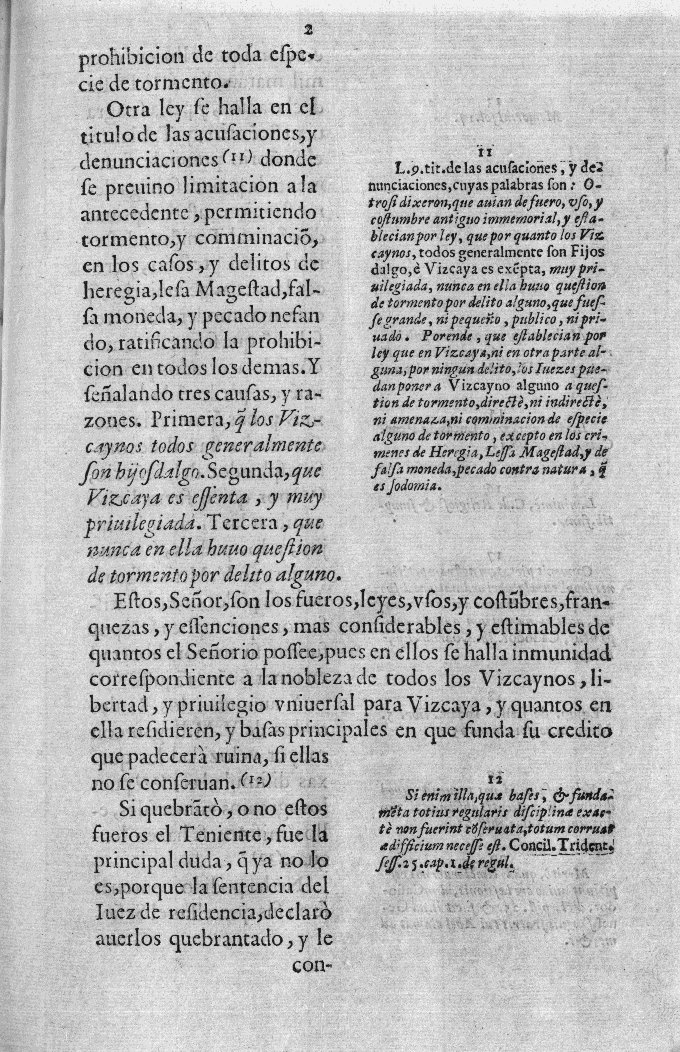 2
prohibicion de toda espe-
cie de tormento.
Otra ley se halla en el
titulo de las acusaciones, y
denunciaciones (11) donde
se preuino limitacion a la
antecedente, permitiendo
tormento, y comminaciõ,
en los casos, y delitos de
heregia, lesa Magestad, fal-
sa moneda, y pecado nefan
do, ratificando la prohibi-
cion en todos los demas. Y
señalando tres causas, y ra-
zones. Primera, q̃ los Viz-
caynos todos generalmente
son hijosdalgo. Segunda, que
Vizcaya es essenta, y muy
priuilegiada. Tercera, que
nunca en ella huuo question
de tormento por delito alguno.
11
L. 9. tit. de las acusaciones, y de-
nunciaciones, cuyas palabras son: O-
trosi dixeron, que auian de fuero, vso, y
costumbre antiguo immemorial, y esta-
blecian por ley, que por quanto los Viz
caynos, todos generalmente son Fijos
dalgo, è Vizcaya es exẽpta, muy pri-
uilegiada, nunca en ella huuo question
de tormento por delito alguno, que fues-
se grande, ni pequeño, publico, ni pri-
uado. Porende, que establecian por
ley que en Vizcaya, ni en otra parte al-
guna, por ningun delito, los Iuezes pue-
dan poner a Vizcayno alguno a ques-
tion de tormento, directè, ni indirectè,
ni amenaza, ni comminacion de especie
alguno de tormento, excepto en los cri-
menes de Heregia, Lessa Magestad, y de
falsa moneda, pecado contra natura, q̃
es sodomia.
Estos, Señor, son los fueros, leyes, vsos, y costũbres, fran-
quezas, y essenciones, mas considerables, y estimables de
quantos el Señorio possee, pues en ellos se halla inmunidad
correspondiente a la nobleza de todos los Vizcaynos, li-
bertad, y priuilegio vniuersal para Vizcaya, y quantos en
ella residieren, y basas principales en que funda su credito
que padecerà ruina, si ellas
no se conseruan. (12)
Si quebrãtò, o no estos
fueros el Teniente, fue la
principal duda, q̃ ya no lo
es, porque la sentencia del
Iuez de residencia, declarò
auerlos quebrantado, y le
con-
12
Si enim illa, quæ bases, & funda-
mẽta totius regularis disciplinæ exac-
tè non fuerint cõseruata, totum corruat
ædifficium necesse est. Concil. Trident.
sess. 25. cap. 1. de regul.